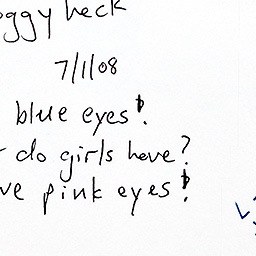 oggy heck
7/1/08
blue eyes!
do girls have?
ve pink eyes!